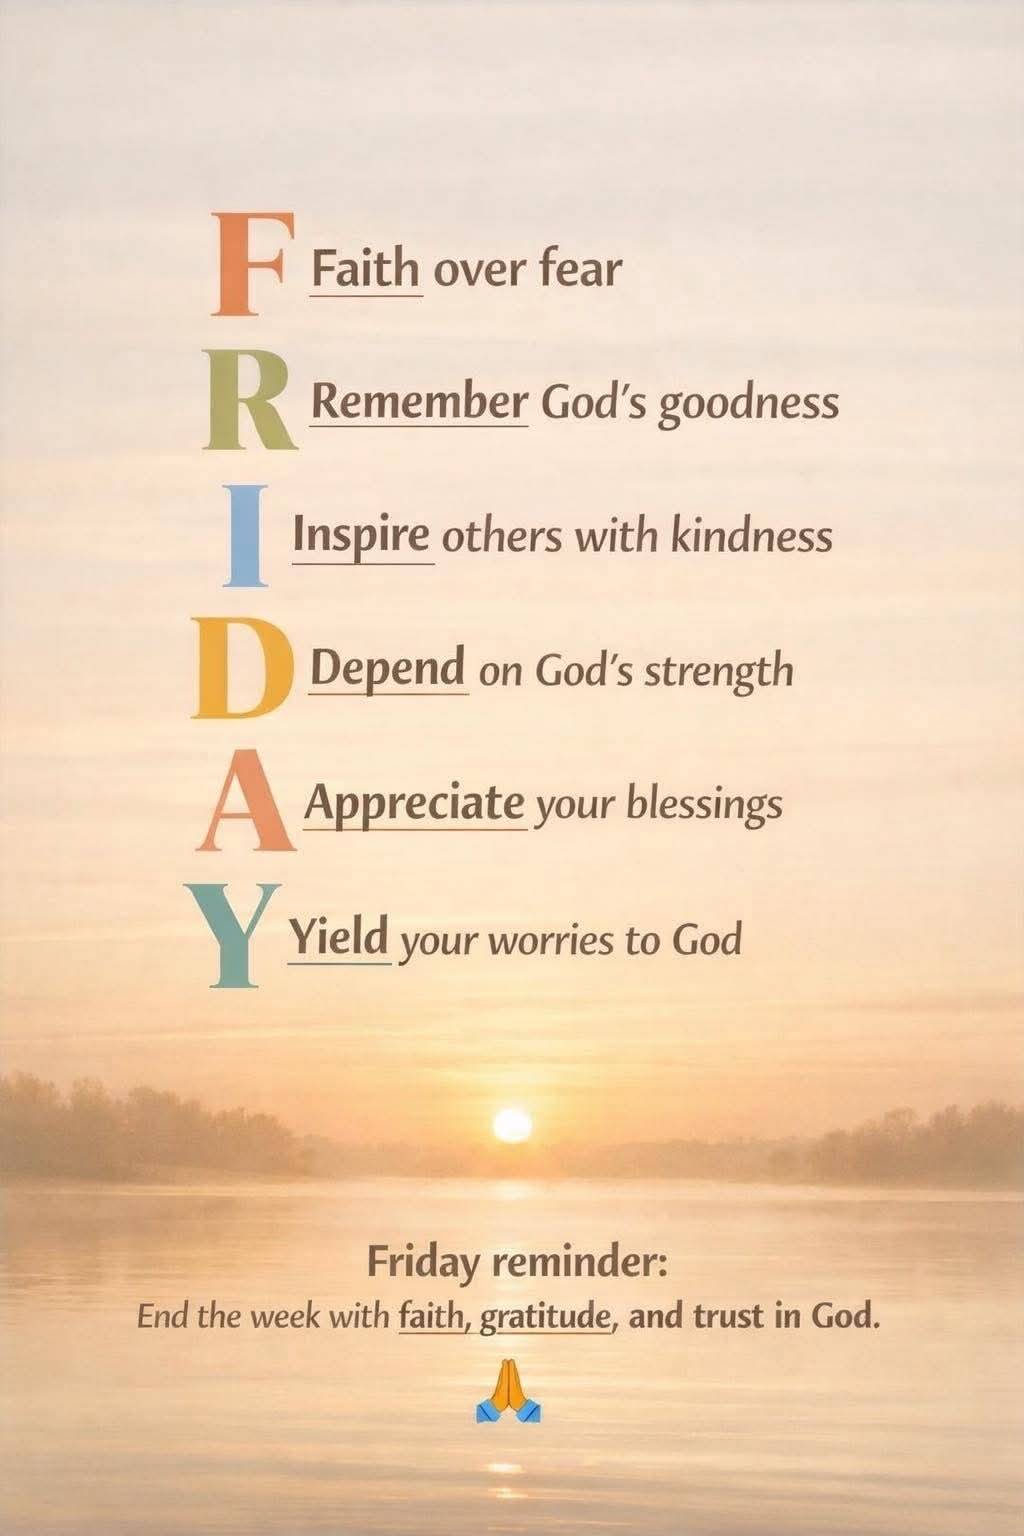 F Faith over fear
R Remember God's goodness
I Inspire others with kindness
D Depend on God's strength
A Appreciate your blessings
Y Yield your worries to God
Friday reminder:
End the week with faith, gratitude, and trust in God.